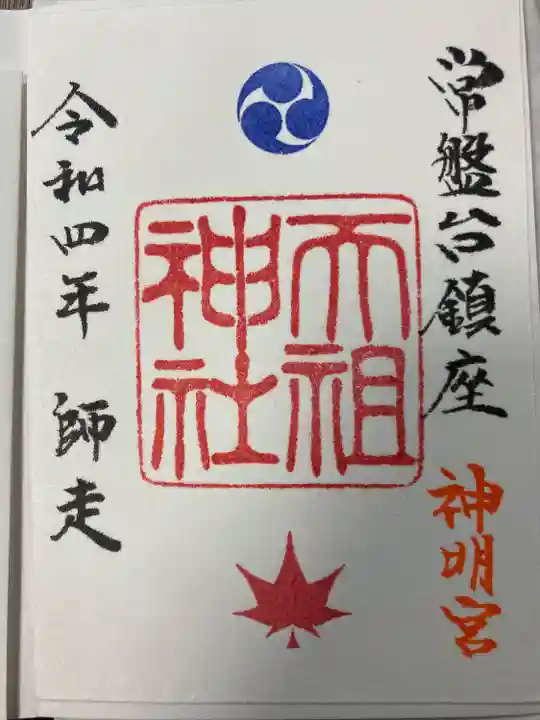 常盤台鎮座 神明宮
天祖
神社
令和四年 師走